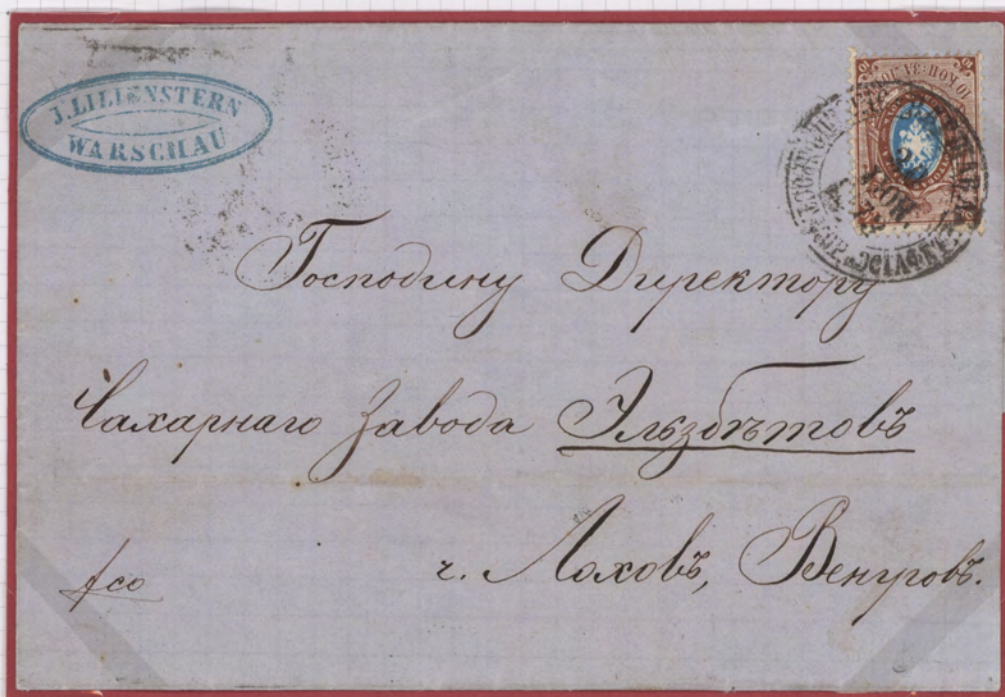 J. LILIENSTERN
WARSCHAU
10 КОП. ЗА ЛОТ
НОЯ
Господину Директору
Сахарнаго Завода Эльзбѣтовъ
ч. Лоховъ, Венгровъ.
fco